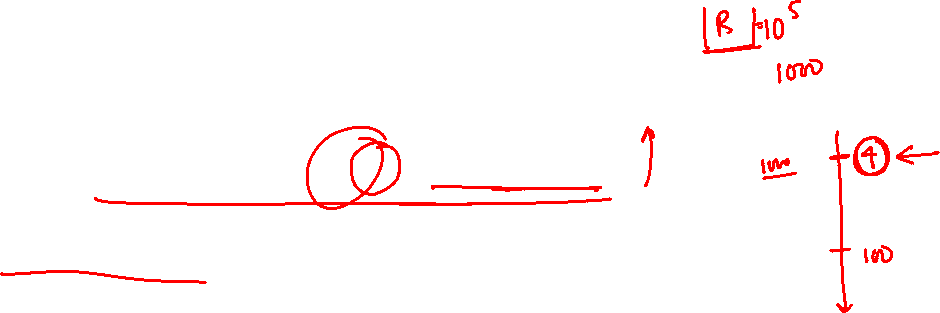 |B|=10⁵
1000
1000 4
100